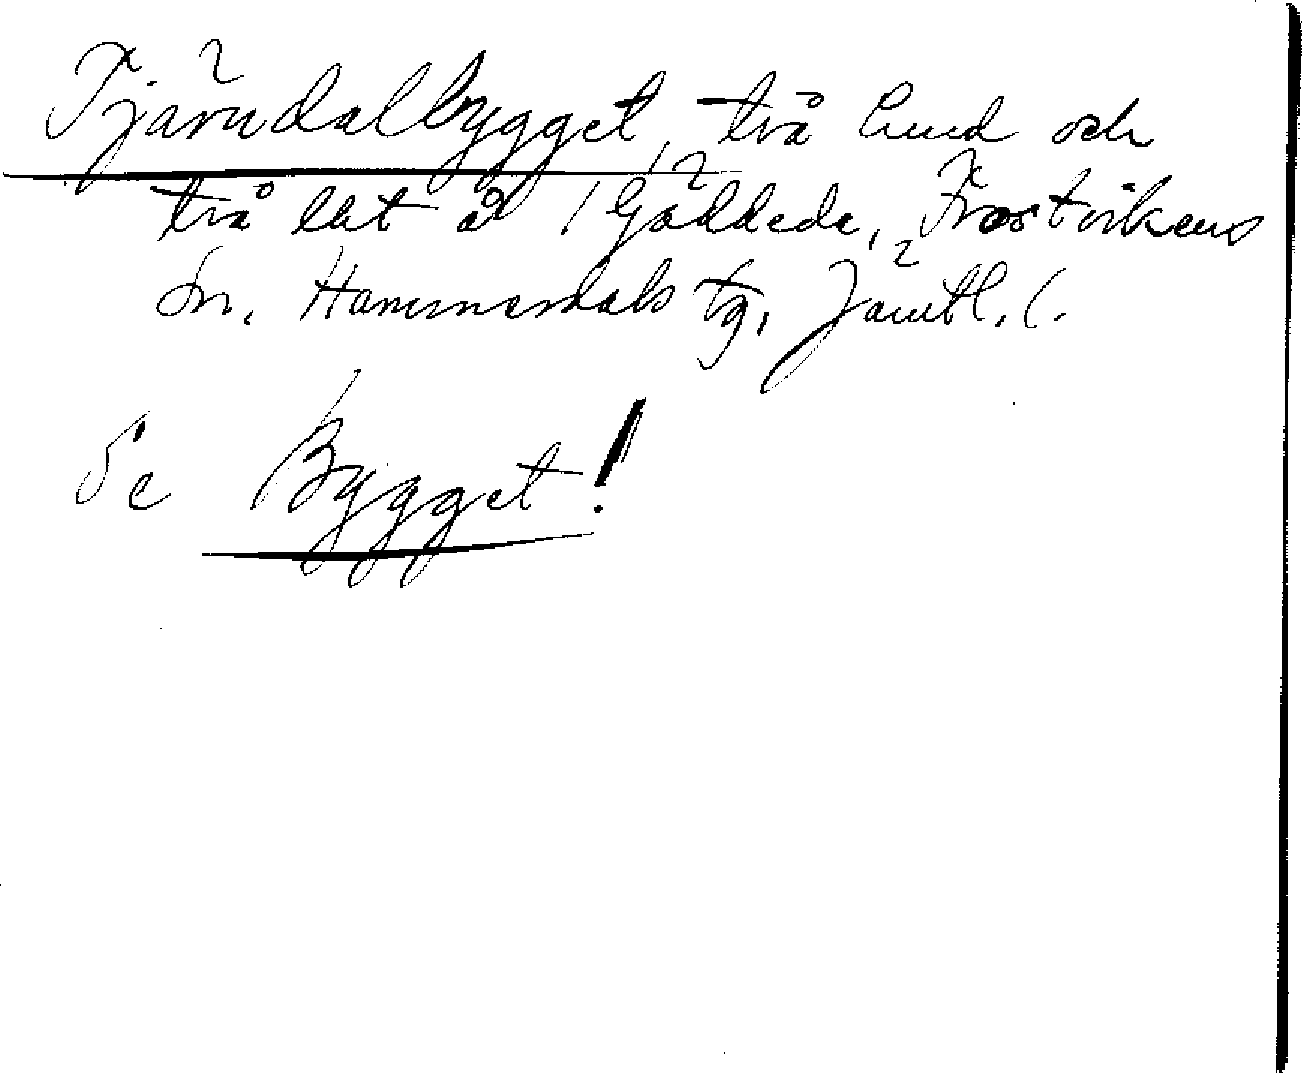 Tjärndalbygget, två hmd och
två lht å 1 Gäddede, Frostvikens
sn, Hammerdals tg, Jämtl. l.
Se Bygget!